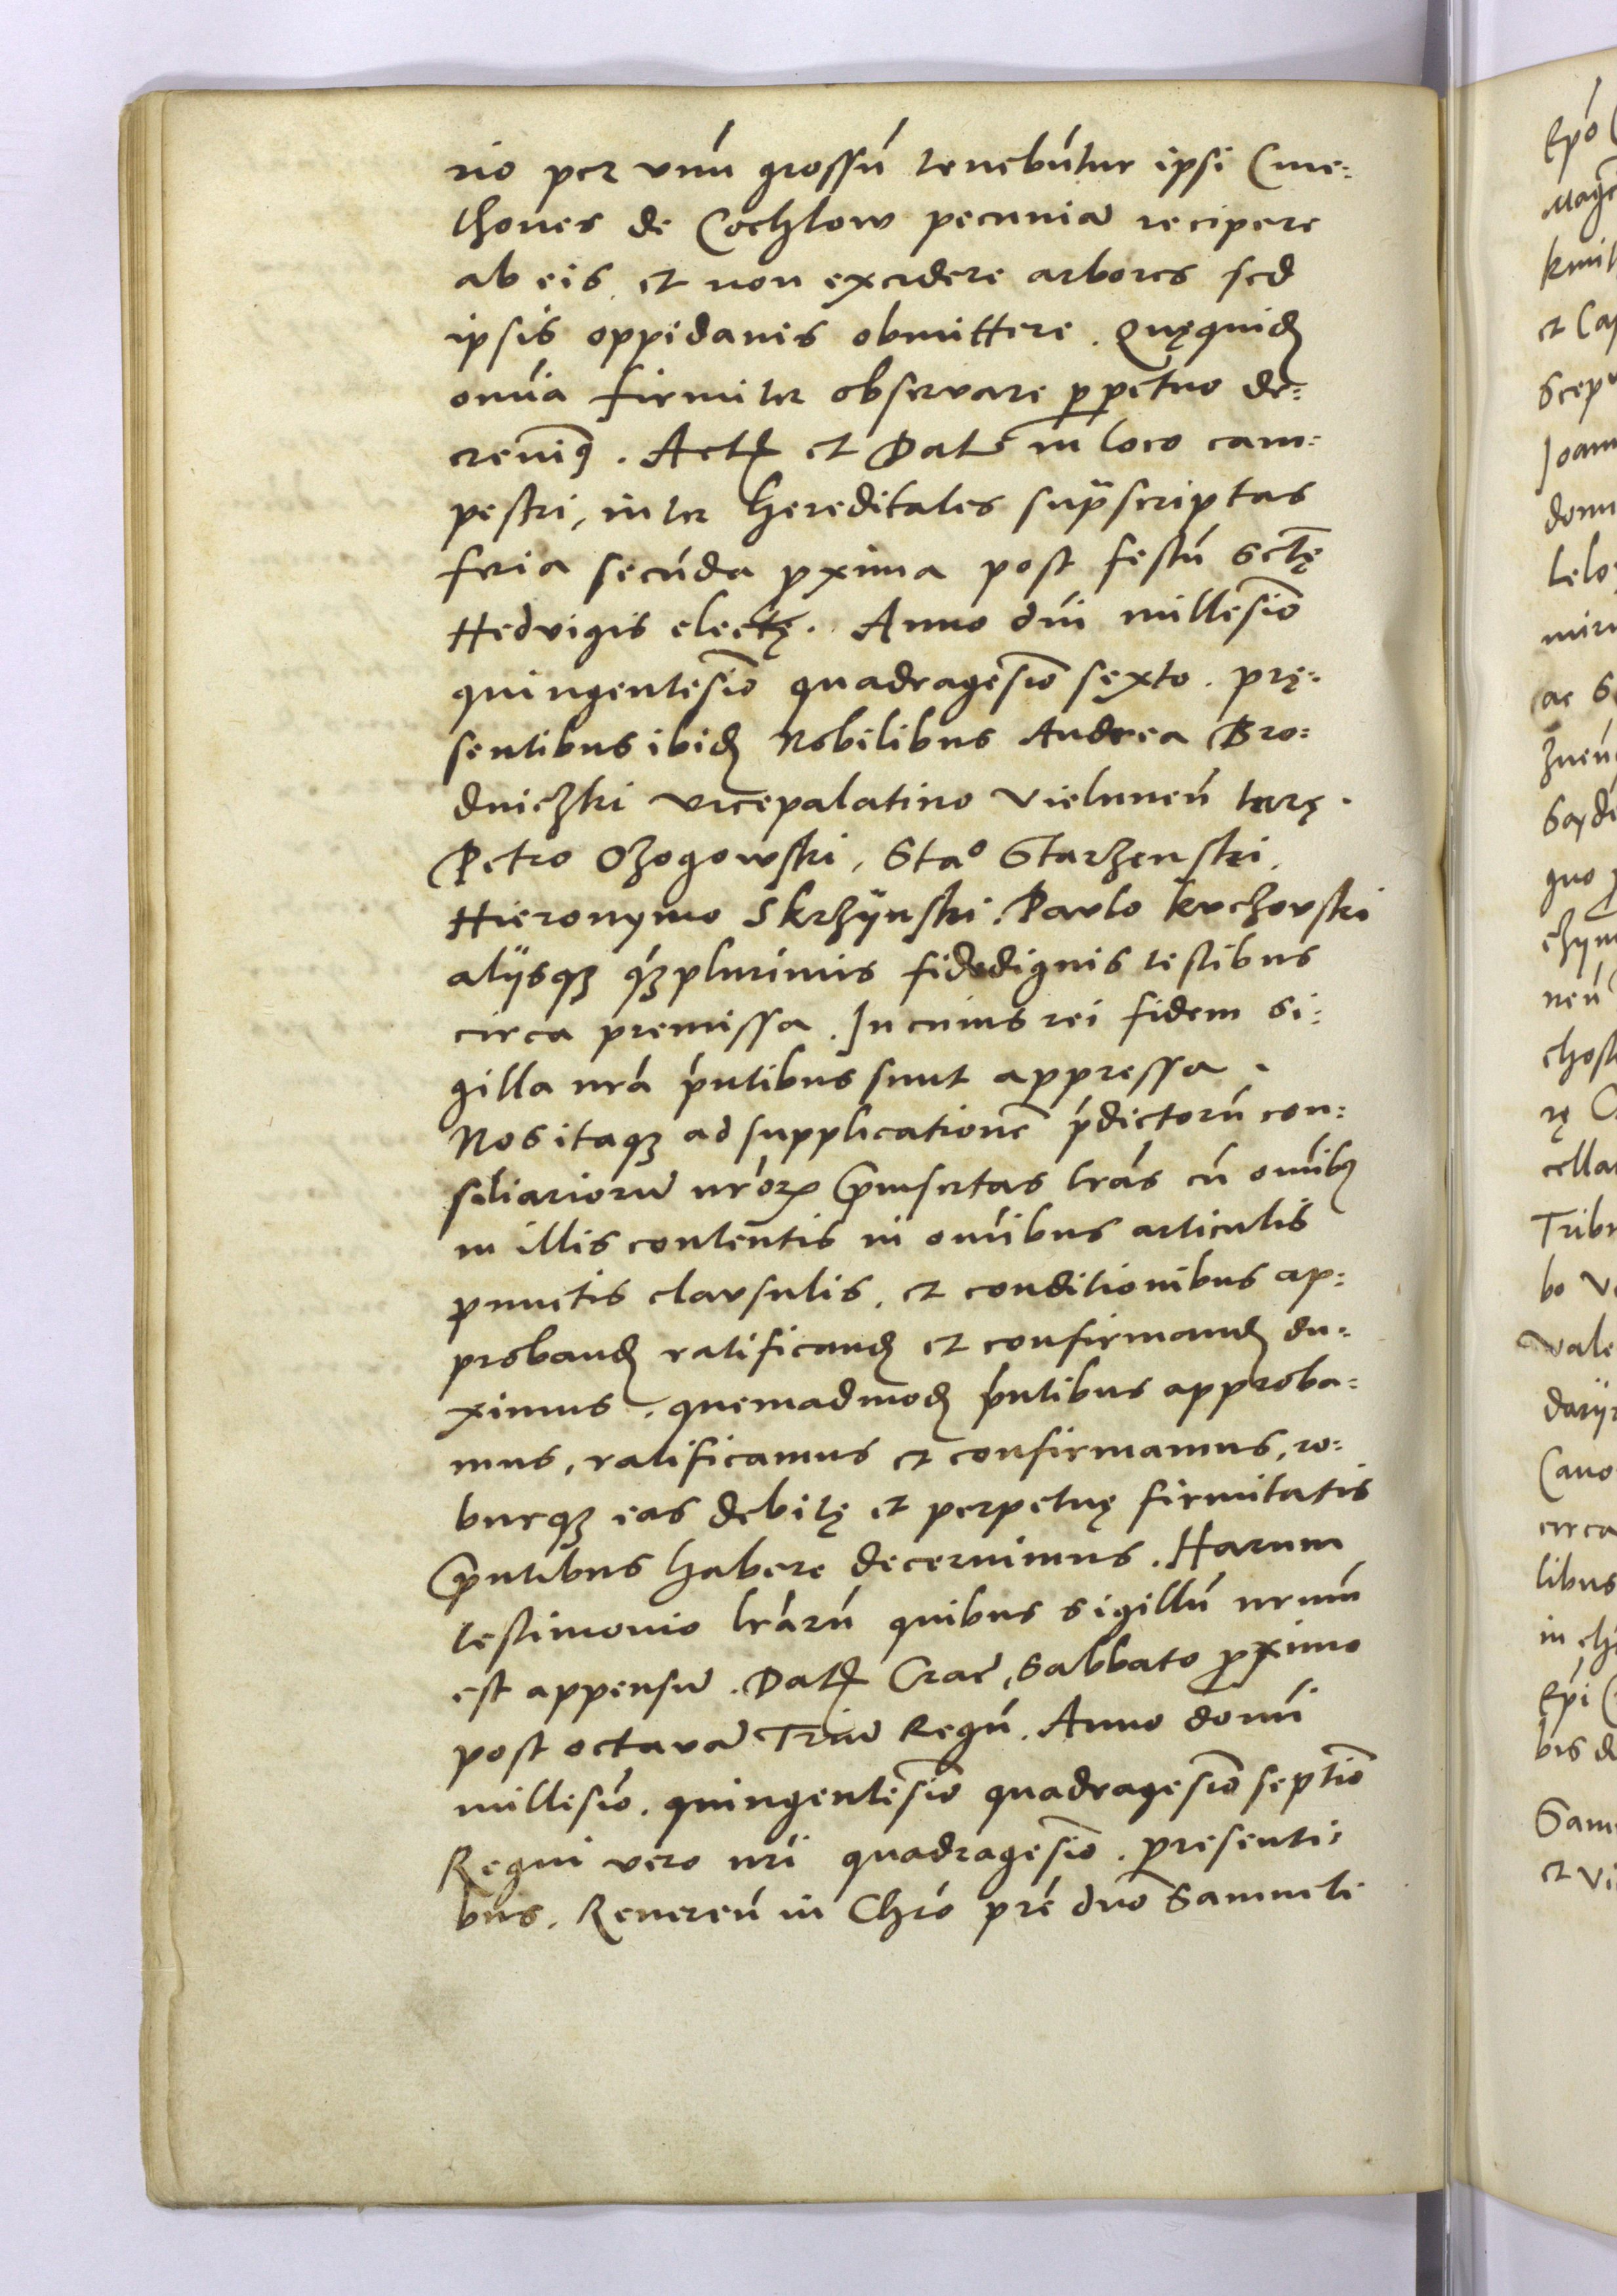 rio per vnu̅ grossu̅ tenebu̅tur ipsi Cme:
thones de Cochlow pecunia̅ recipere
ab eis et non excidere arbores sed
ipsis oppidanis obmittere. Quęquid̅
om̅ia firmiter observare p̱petuo de:
crevim9. Act̅ et Datu̅ in loco cam:
pestri, inter hereditates sup̅scriptas
feria secu̅da p̱xima post festu̅ Sctę
Hedvigis electę. Anno dn̅i millesi̅o
quingentesi̅o quadragesi̅o sexto. prę:
sentibus ibid̅ Nobilibus Andrea Bro:
dniczki vicepalatino Vielunen̅ terrę.
Petro Ozogowski, Stao Starzenski,
Hieronymo Skrzÿnski. Pavlo kuchovski
alÿsqꝫ q̅ꝫplurimis fidedignis testibus
circa premissa. In cuius rei fidem si:
gilla nr̅a pn̅tibus sunt appressa.
Nos itaqꝫ ad supplicatione̅ p̅dictoru̅ con:
siliarioru̅ nr̅oꝝ p̅insertas lr̅as cu̅ om̅ib9
in illis contentis in om̅ibus articulis
punctis clausulis, et conditionibus ap:
proband̅ ratificand̅ et confirmand̅ du:
ximus, quemadmod̅ pn̅tibus approba:
mus, ratificamus et confirmamus, ro:
burqꝫ eas debitę et perpetuę firmitatis
pn̅tibus habere decernimus. Harum
testimonio lr̅aru̅ quibus sigillu̅ nrum̅
est appensu̅. Dat̅ Crac̅, Sabbato p̱ximo
post octava̅ Triu̅ Regu̅. Anno domi̅
millesi̅o. quingentesi̅o quadragesi̅o septi̅o
Regni vero nr̅i quadragesi̅o. presenti:
bus. Reveren̅ in Chr̅o pr̅e dn̅o Samuele